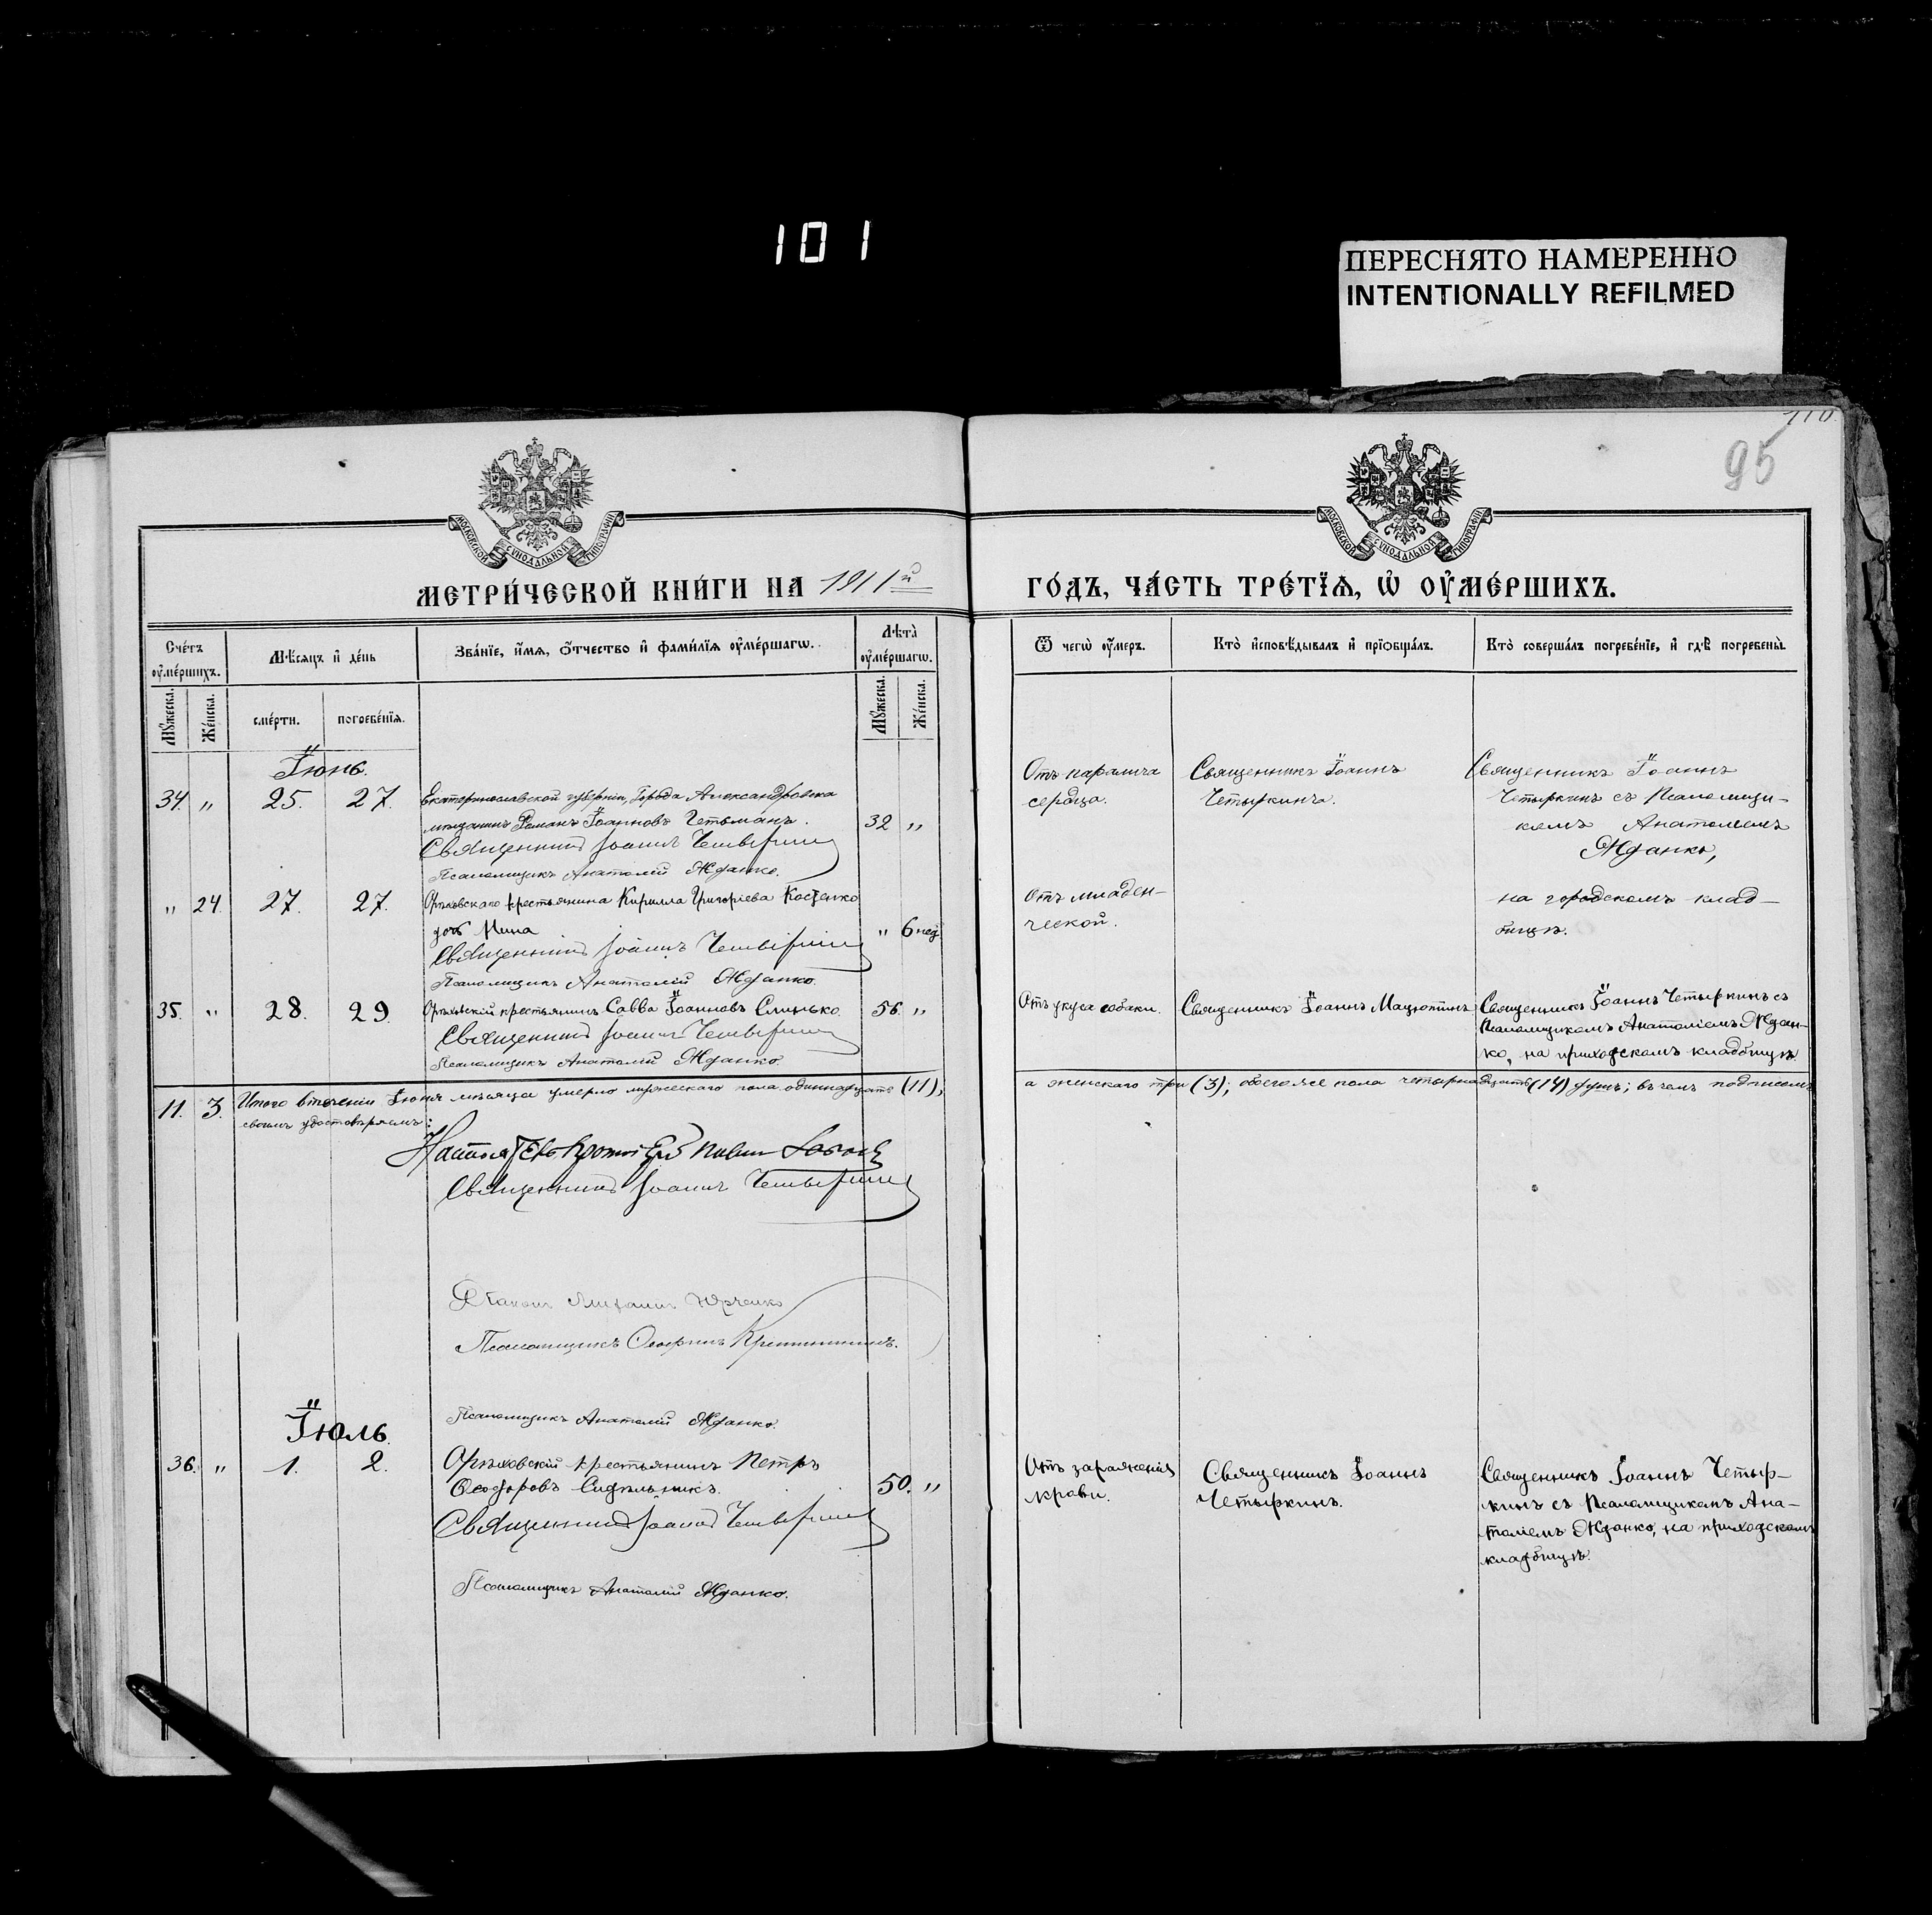 101
ПЕРЕСНЯТО НАМЕРЕННО
INTENTIONALLY REFILMED
110.
95
МОСКОВСКОЙ СѴНОДАЛЬНОЙ ТИПОГРАФІИ
МОСКОВСКОЙ СѴНОДАЛЬНОЙ ТИПОГРАФІИ
МЕТРИ́ЧЕСКОЙ КНИ́ГИ НА 1911й
ГО́ДЪ, ЧА́СТЬ ТРЕ́ТЇѦ, Ѡ҆ ОУ҆МЕ́РШИХЪ.
Сче́тъ оу҆ме́ршихъ.
Мꙋ́жеска.
Же́нска.
Мѣ́сяцъ и҆ де́нь
сме́рти.
погребе́нїѧ.
Зва́нїе, и҆́мѧ, ѻ҆́тчество и҆ фами́лїѧ оу҆ме́ршагѡ.
Лѣ́та оу҆ме́ршагѡ.
Мꙋ́жеска.
Же́нска.
Ѿ чегѡ̀ оу҆́меръ.
Кто̀ и҆сповѣ́дывалъ и҆ прїѻбща́лъ.
Кто̀ соверша́лъ погребе́нїе, и҆ гдѣ̀ погребены̀.
Іюнь.
34. " 25. 27. Екатеринославской губерніи, Города Александровска
мѣщанинъ Романъ Іоанновъ Гетьманъ. 32 "
Священникъ Іоаннъ Четыркинъ
Псаломщикъ Анатолій Жданко.
Отъ паралича
сердца.
Священникъ Іоаннъ
Четыркинъ.
Священникъ Іоаннъ
Четыркинъ съ Псаломщи-
комъ Анатоліемъ
Жданко,
" 24. 27. 27. Орѣховскаго крестьянина Кирилла Григоріева Костенко
дочь Нина " 6 нед
Священникъ Іоаннъ Четыркинъ
Псаломщикъ Анатолій Жданко.
Отъ младен-
ческой.
на городскомъ клад-
бищѣ.
35. " 28. 29. Орѣховскій крестьянинъ Савва Іоанновъ Слинько. 56. "
Священникъ Іоаннъ Четыркинъ
Псаломщикъ Анатолій Жданко.
Отъ укуса собаки.
Священникъ Іоаннъ Мацютинъ
Священникъ Іоаннъ Четыркинъ съ
Псаломщикомъ Анатоліемъ Ждан-
ко, на приходскомъ кладбищѣ.
11. 3. Итого втеченіи Іюня мѣсяца умерло мужескаго пола одиннадцать (11);
а женскаго три (3); обоего же пола четырнадцать (14) душъ; въ чемъ подписомъ
своимъ удостовѣряемъ:
Священникъ Іоаннъ Четыркинъ
Михаилъ Юрченко
Псаломщикъ
Псаломщикъ Анатолій Жданко.
Іюль.
36. " 1. 2. Орѣховскій крестьянинъ Петръ
Ѳеодоровъ Сидѣльникъ. 50. "
Священникъ Іоаннъ Четыркинъ
Псаломщикъ Анатолій Жданко.
Отъ зараженія
крови.
Священникъ Іоаннъ
Четыркинъ.
Священникъ Іоаннъ Четыр-
кинъ съ Псаломщикомъ Ана-
толіемъ Жданко, на приходскомъ
кладбищѣ.